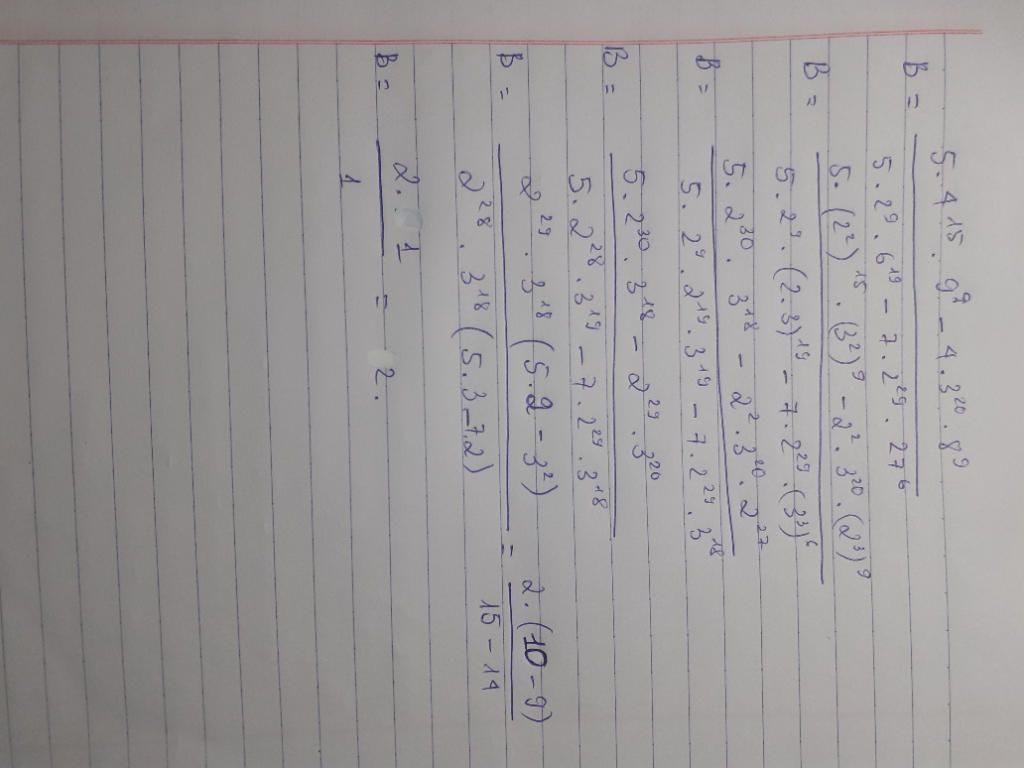 B = 5.4¹⁵.9⁹ - 4.3²⁰.8⁹ / 5.2⁹.6¹⁹ - 7.2²⁹.27⁶
B = 5.(2²)¹⁵.(3²)⁹ - 2².3²⁰.(2³)⁹ / 5.2⁹.(2.3)¹⁹ - 7.2²⁹.(3³)⁶
B = 5.2³⁰.3¹⁸ - 2².3²⁰.2²⁷ / 5.2⁹.2¹⁹.3¹⁹ - 7.2²⁹.3¹⁸
B = 5.2³⁰.3¹⁸ - 2²⁹.3²⁰ / 5.2²⁸.3¹⁹ - 7.2²⁹.3¹⁸
B = 2²⁹.3¹⁸(5.2 - 3²) / 2²⁸.3¹⁸(5.3-7.2) = 2.(10-9) / 15-14
B = 2.1 / 1 = 2.